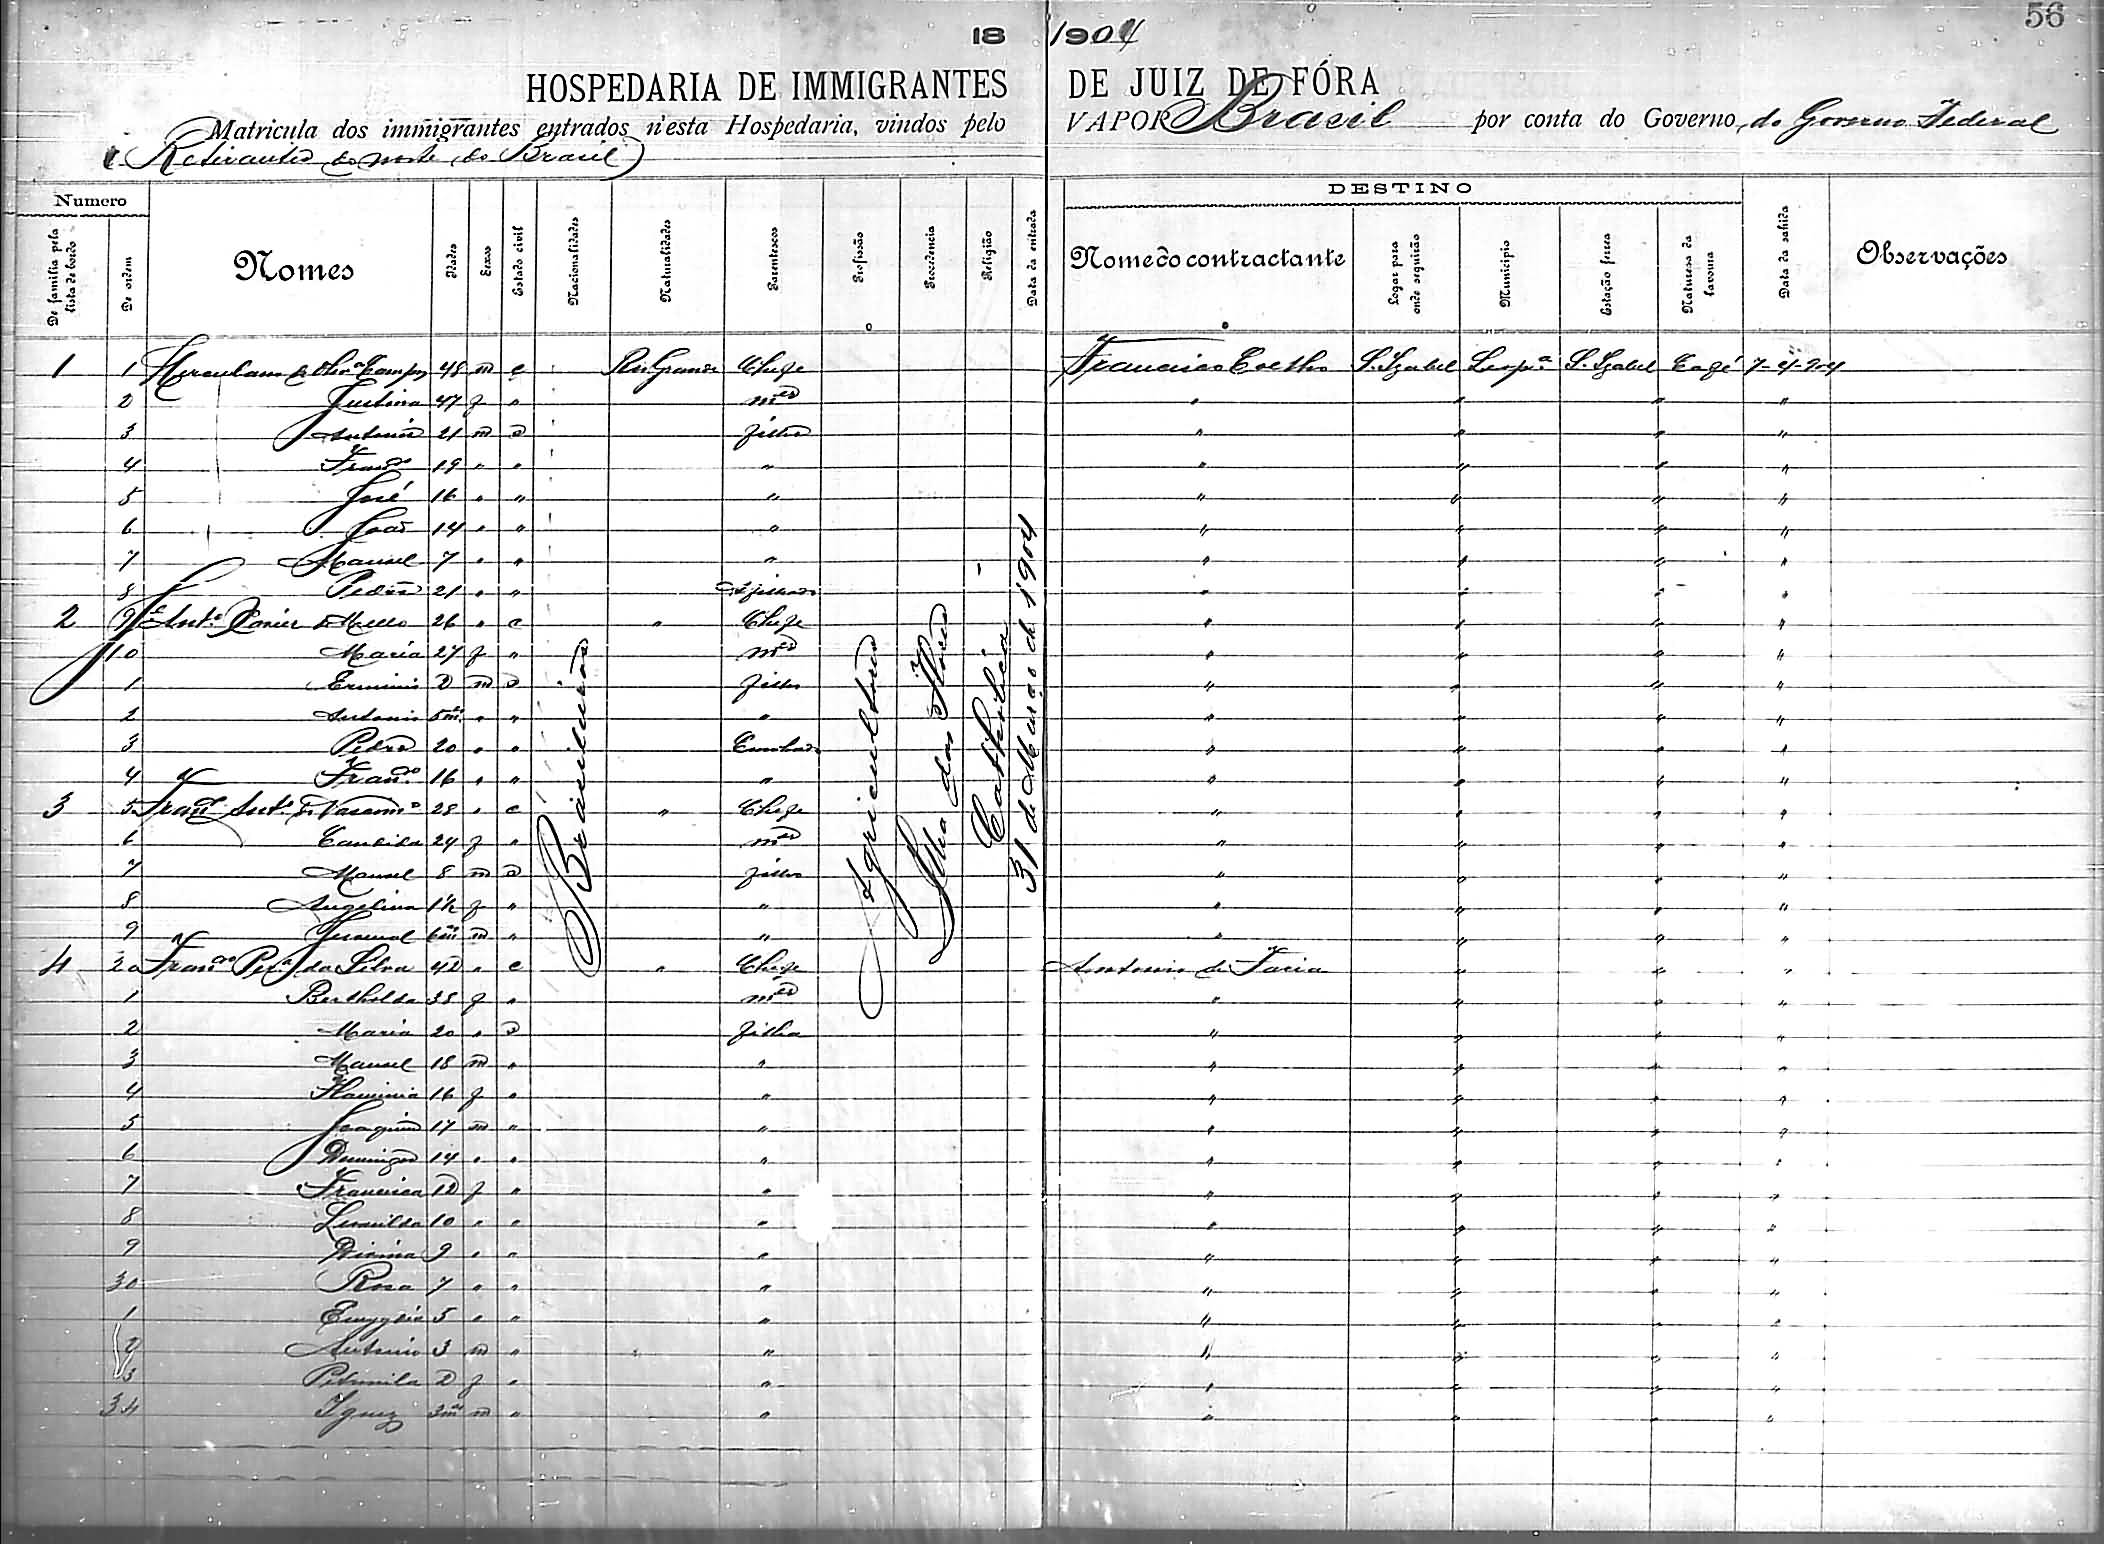 56
18 1904
HOSPEDARIA DE IMMIGRANTES DE JUIZ DE FÓRA
Matricula dos immigrantes entrados n'esta Hospedaria, vindos pelo VAPOR Brasil por conta do Governo do Governo Federal
(Retirantes do norte do Brasil)
Numero DESTINO
De familia pela lista de bordo De ordem Nomes Idades Sexos Estado civil Nacionalidades Naturalidades Parentescos Profissão Procedencia Religião Data da entrada Nome do contractante Logar para onde seguirão Municipio Estação ferrea Natureza da lavoura Data da sahida Observações
1 1 Herculano de Olivra Campos 48 m c Rio Grande Chefe Francisco Coelho S. Izabel Leopa S. Izabel Café 7-4-904
2 Justina 47 f " mer " " " "
3 Antonio 21 m s filho " " " "
4 Franco 19 " " " " " " "
5 José 16 " " " " " " "
6 João 14 " " " " " " "
7 Manoel 7 " " " " " " "
8 Pedro 21 " " " " " "
2 9 Anto Xavier de Mello 26 " c " Chefe " " " "
10 Maria 27 f " mer " " " "
1 Erminio 2 m s filho " " " "
2 Antonio 5 ms " " " " " " "
3 Pedro 20 " " Cunhado " " " "
4 Franco 16 " " " " " " "
3 5 Franco Anto de 28 " c " Chefe " " " "
6 Candida 24 f " mer " " " "
7 Manoel 8 m s filho " " " "
8 Angelina 1½ f " " " " " "
9 Juvenal 6 ms m " " " " " "
4 20 Franco Pera da Silva 42 " c " Chefe Antonio de Faria " " "
1 Bertholda 38 f " mer " " " "
2 Maria 20 " s filha " " " "
3 Manoel 18 m " " " " " "
4 Flaminia 16 f " " " " " "
5 Joaquim 17 m " " " " " "
6 Domingos 14 " " " " " " "
7 Francisca 12 f " " " " " "
8 10 " " " " " " "
9 9 " " " " " " "
30 Rosa 7 " " " " " " "
1 Emygdia 5 " " " " " " "
2 Antonio 3 m " " " " " "
3 Petronila 2 f " " " " " "
34 3 ms m " " " " " "
Brasileiros
Agricultores
Ilha das Flores
Catholica
31 de Março de 1904